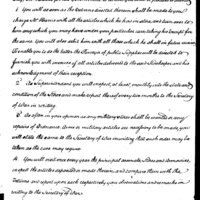 1. You will as soon as the Returns directed herein shall be made to you
charge Mr Harris with all the articles which he has in store and turn over to
him any which you may have under your particular care taking his Receipt for
the same. You will also turn him with all those which he shall in future receive
To enable you to do the latter the Purveyor of public Supplies will be ordered to
furnish you with invoices of all articles delivered to the said Storekeeper and his
acknowledgment of their reception.
2. To Superintend you will inspect, at least, monthly into the state and
condition of the Stores and make report thereof every two months to the Secretary
of War in writing.
3. As often in your opinion as any military stores shall be wanted or any
repairs of Ordnance Arms or military articles are necessary to be made, you
will state the same to the Secretary of War in writing that such order may be
taken as the case may require.
4. You will visit once every year the principal Stores and Armouries,
inspect the articles deposited or made therein, and compare them with the
Returns and report upon each respectively your observations and remarks in
writing to the Secretary of War.